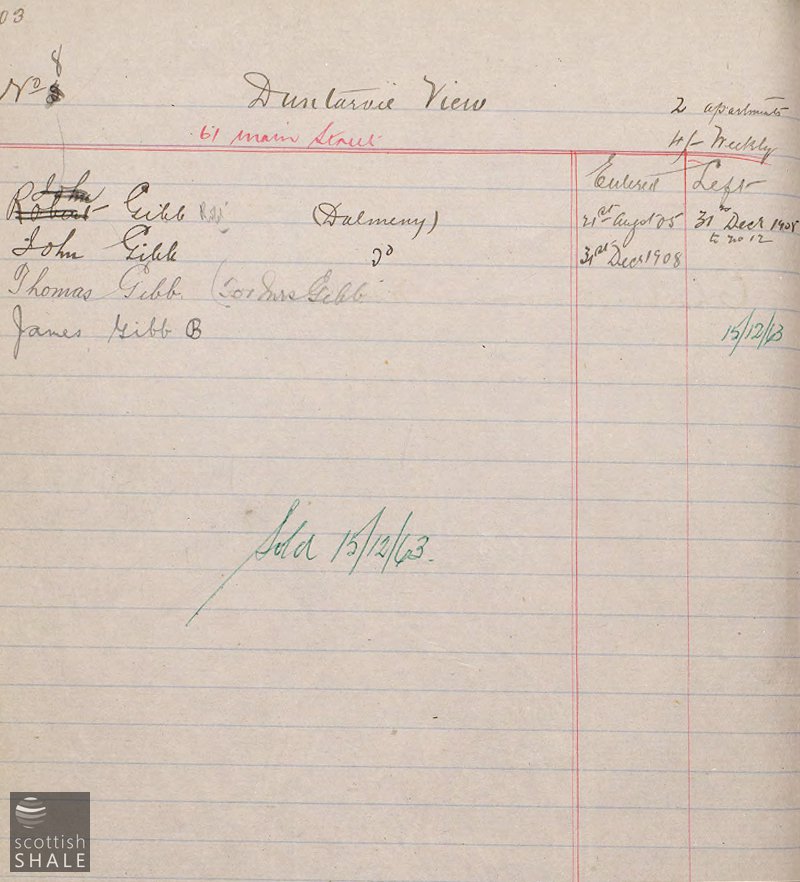 03
No 8
Duntarvie View
2 apartments
61 Main Street
4/- Weekly
Entered Left
John
Robert Gibb (Dalmeny) 21st Augst 05 31st Decr 1908
to no 12
John Gibb Do 31st Decr 1908
Thomas Gibb (For Mrs Gibb
James Gibb B 15/12/63
Sold 15/12/63.
scottish
SHALE